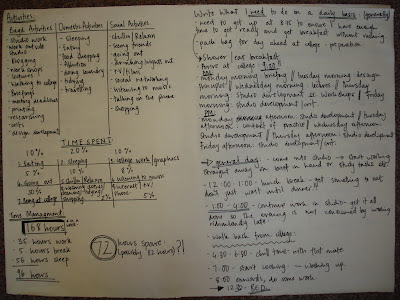 Activities
Based Activities
- studio work
- work outside studio
- blogging
- workshops
- lectures
- walking to college
- briefings
- meeting deadlines
- printing
- researching
- crits
- design development
Domestic Activities
- Sleeping
- Eating
- food shopping
- doing laundry
- travelling
Social Activities
- Chill/Relax
- Seeing friends
- going out
- TV/films
- social networking
- listening to music
- talking on the phone
- shopping
TIME SPENT
10% 20% 10%
1. Eating 2. Sleeping 3. college work/graphics
5% 10% 8%
4. Going out 5. Chill/Relax 6. listening to music
30%
5%
Time Management
168 hours in a week
- 35 hours work
- 5 hours break
- 56 hours sleep
96 hours
72 hours spare (possibly 82 hours)?!
Write what I need to do on a daily basis (generally)
- need to get up at 8:15 to ensure I have enough
time to get ready and get breakfast without rushing
- pack bag for day ahead at college - preparation
→ Shower / eat breakfast
- Arrive at college
monday morning briefing / tuesday morning design
principles / wednesday morning lectures / thursday
morning studio development or workshops / friday
morning studio development / crit.
monday afternoon studio development / tuesday
afternoon context of practice / wednesday afternoon
studio development / thursday afternoon studio development
friday afternoon studio development / crit.
→ general day - come into studio → start working
straight away on book in hand or study tasks etc.
- 12:00 - 1:00 lunch break - get something to eat
don't just wait until dinner!!
- 1:00 - 4:00 - continue work in studio - get it all
done so the evening is not consumed by working
- walk back from college.
- 4:30 - 6:30 - chill time with flat mate
- 7:00 - start cooking
- 8:00 onwards, do some work
→ 12:30 - BED.